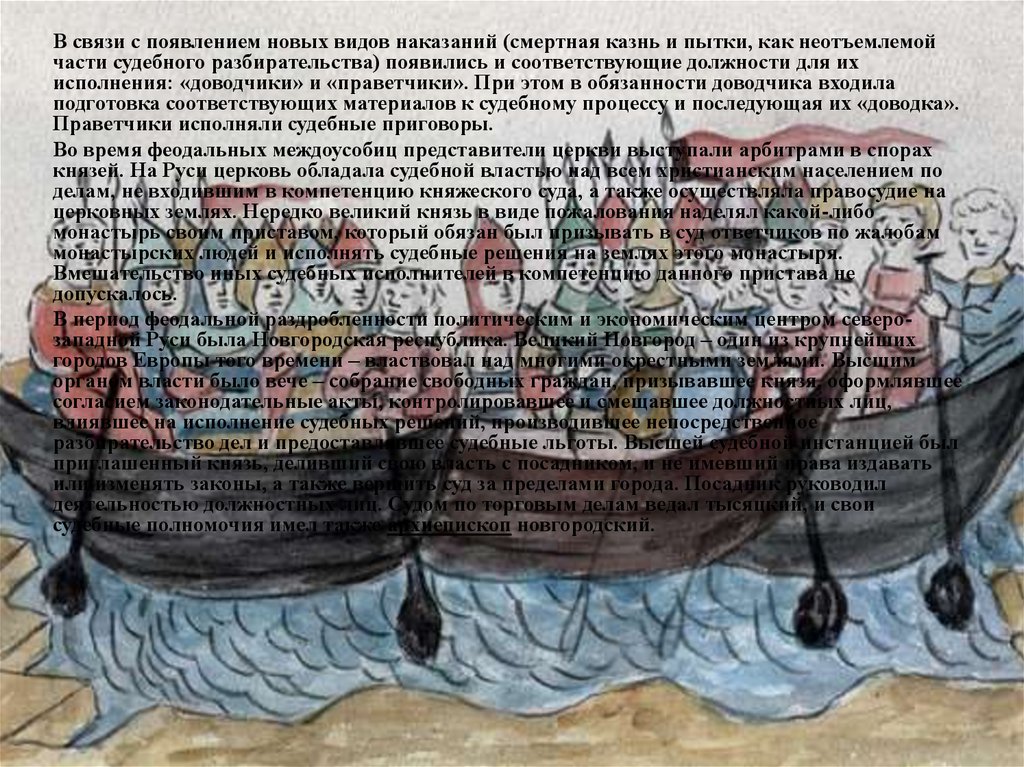 В связи с появлением новых видов наказаний (смертная казнь и пытки, как неотъемлемой
части судебного разбирательства) появились и соответствующие должности для их
исполнения: «доводчики» и «праветчики». При этом в обязанности доводчика входила
подготовка соответствующих материалов к судебному процессу и последующая их «доводка».
Праветчики исполняли судебные приговоры.
Во время феодальных междоусобиц представители церкви выступали арбитрами в спорах
князей. На Руси церковь обладала судебной властью над всем христианским населением по
делам, не входившим в компетенцию княжеского суда, а также осуществляла правосудие на
церковных землях. Нередко великий князь в виде пожалования наделял какой-либо
монастырь своим приставом, который обязан был призывать в суд ответчиков по жалобам
монастырских людей и исполнять судебные решения на землях этого монастыря.
Вмешательство иных судебных исполнителей в компетенцию данного пристава не
допускалось.
В период феодальной раздробленности политическим и экономическим центром северо-
западной Руси была Новгородская республика. Великий Новгород – один из крупнейших
городов Европы того времени – властвовал над многими окрестными землями. Высшим
органом власти было вече – собрание свободных граждан, призывавшее князя, оформлявшее
согласием законодательные акты, контролировавшее и смещавшее должностных лиц,
влиявшее на исполнение судебных решений, производившее непосредственное
разбирательство дел и предоставлявшее судебные льготы. Высшей судебной инстанцией был
приглашенный князь, деливший свою власть с посадником, и не имевший права издавать
или изменять законы, а также вершить суд за пределами города. Посадник руководил
деятельностью должностных лиц. Судом по торговым делам ведал тысяцкий, и свои
судебные полномочия имел также архиепископ новгородский.